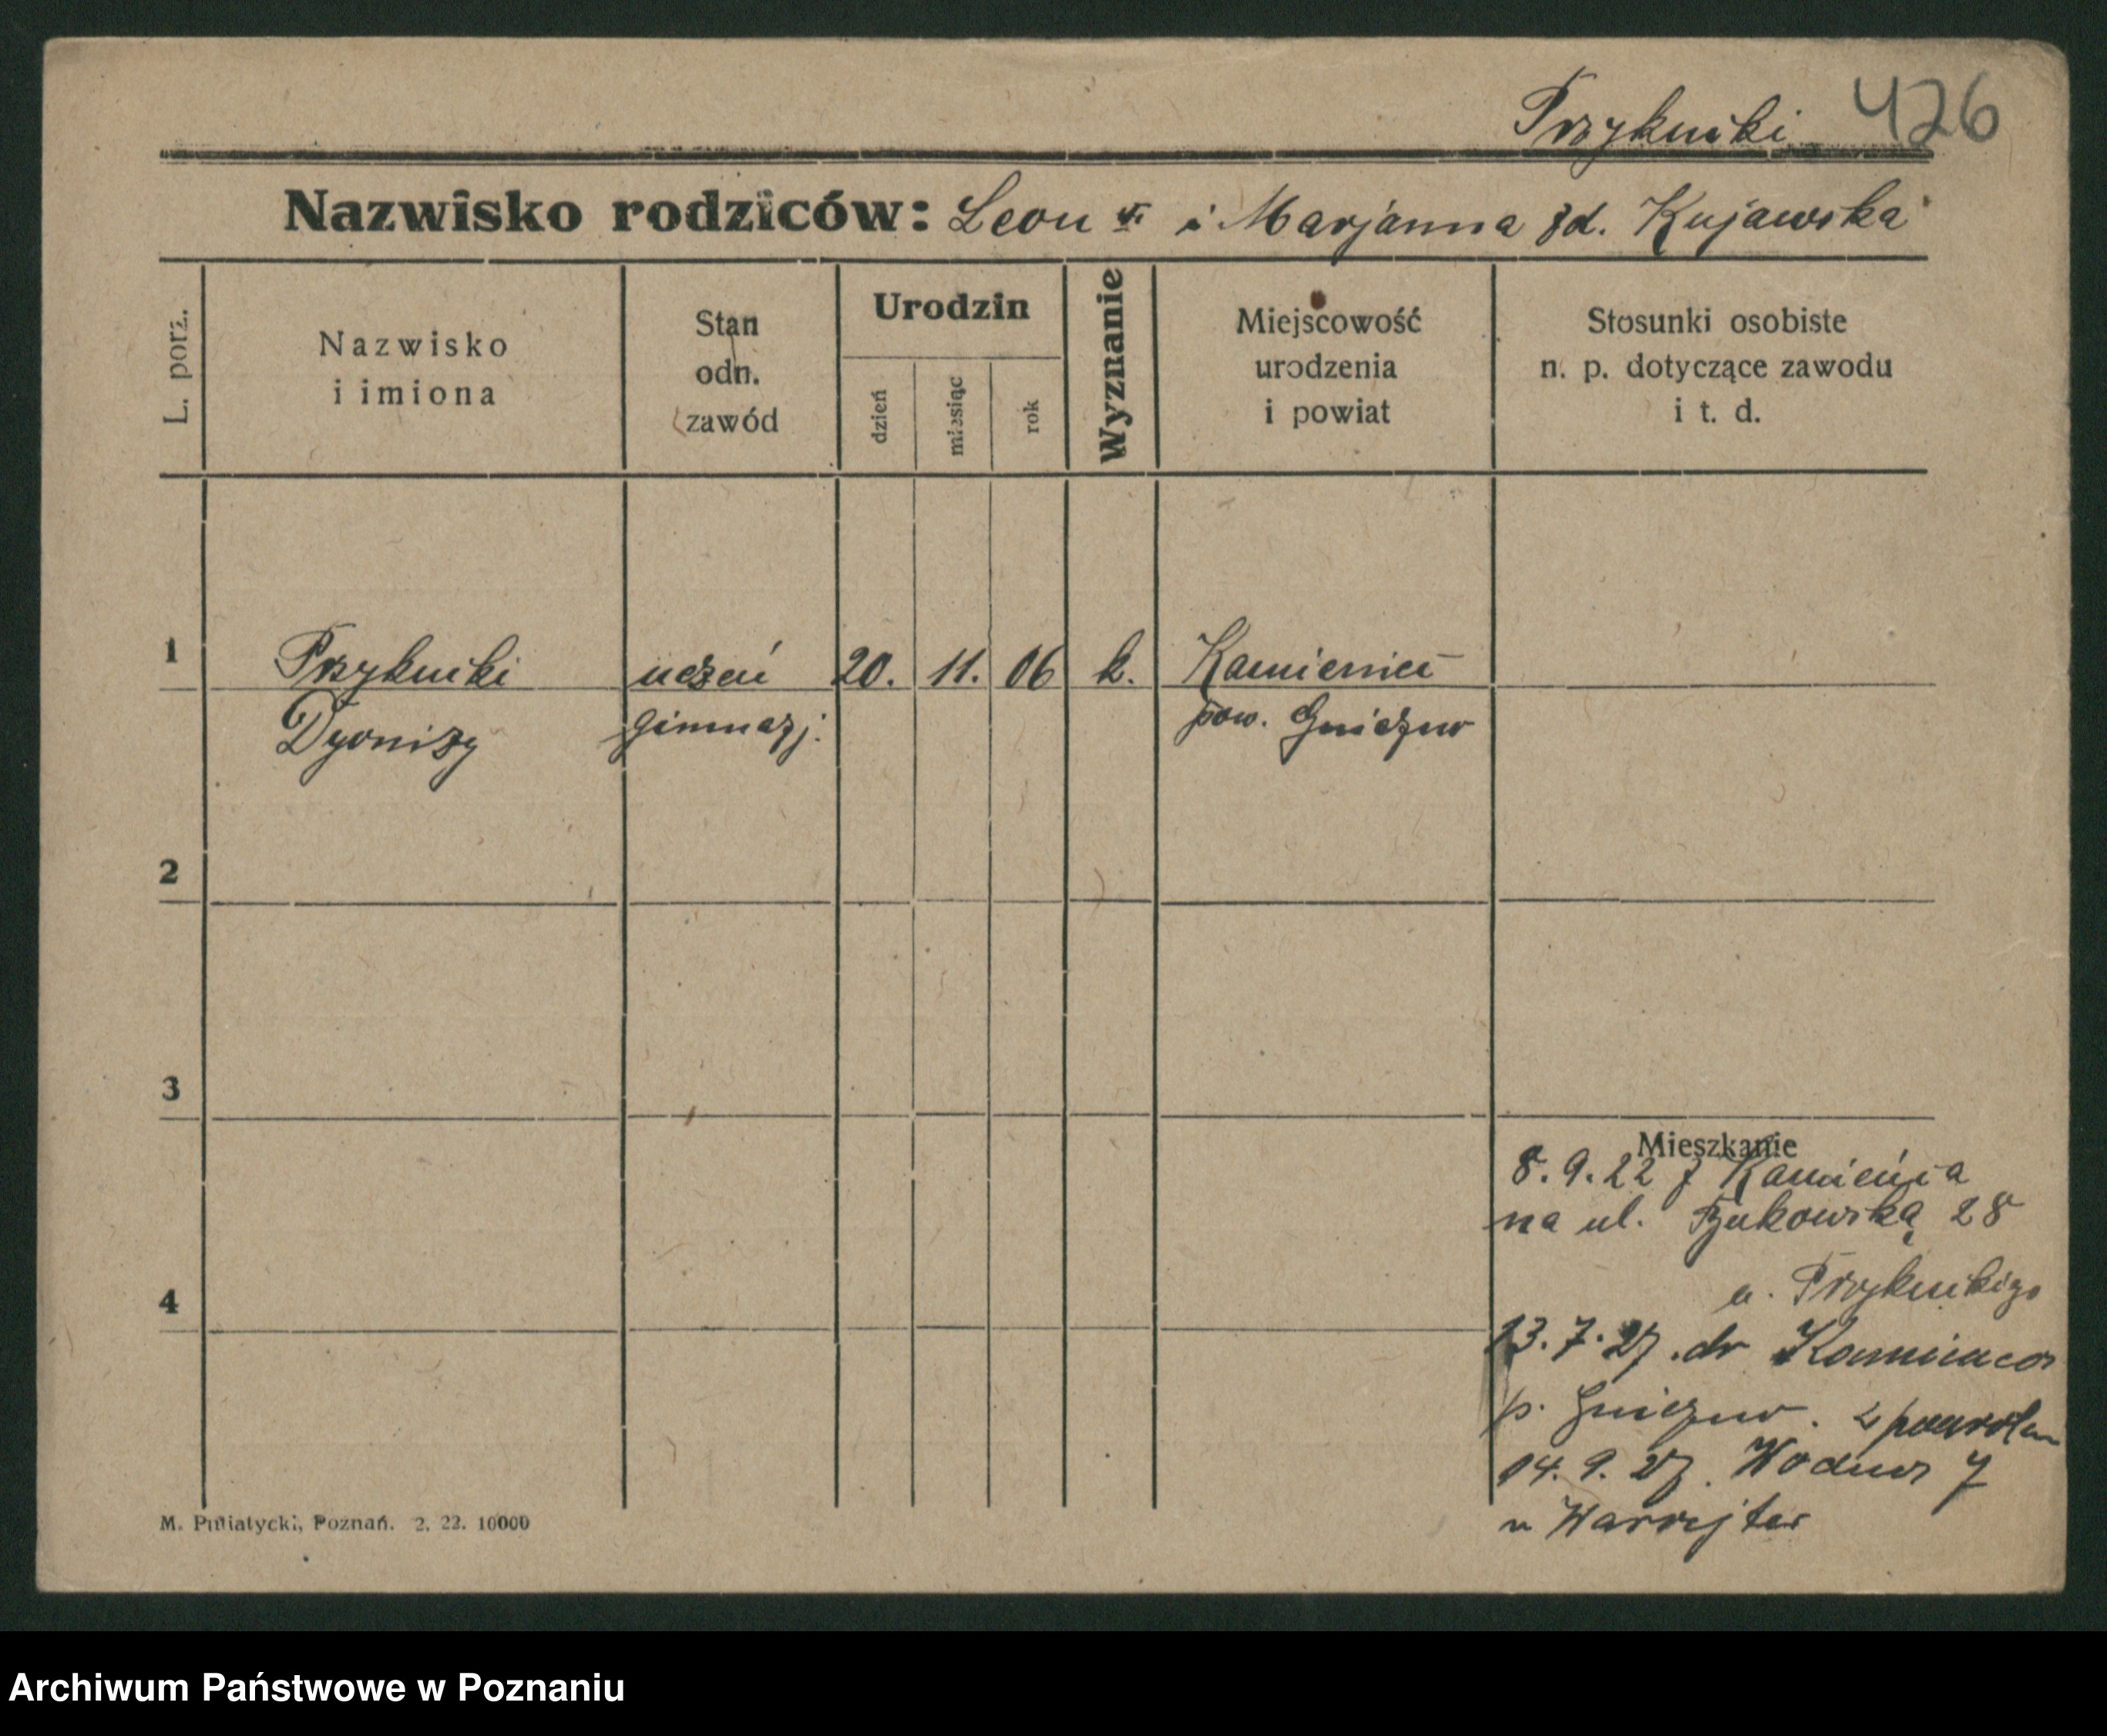 Przykucki 426
Nazwisko rodziców: Leon i Marjanna zd. Kujawska
L. porz.
Nazwisko
i imiona
Stan
odn.
zawód
Urodzin
dzień
miesiąc
rok
Wyznanie
Miejscowość
urodzenia
i powiat
Stosunki osobiste
n. p. dotyczące zawodu
i t. d.
1 Przykucki uczeń 20. 11. 06 k. Kamieniec
Dyonizy gimnazj. pow. Gniezno
2
3
4
Mieszkanie
8.9.22 z Kamieńca
na ul. Bukowską 28
u. Przykuckigo
13.7.27. do
p. Gniezno. z powrotem
14.9.27. Wodna 7
u
M. Putiatycki, Poznań. 2. 22. 10000
Archiwum Państwowe w Poznaniu